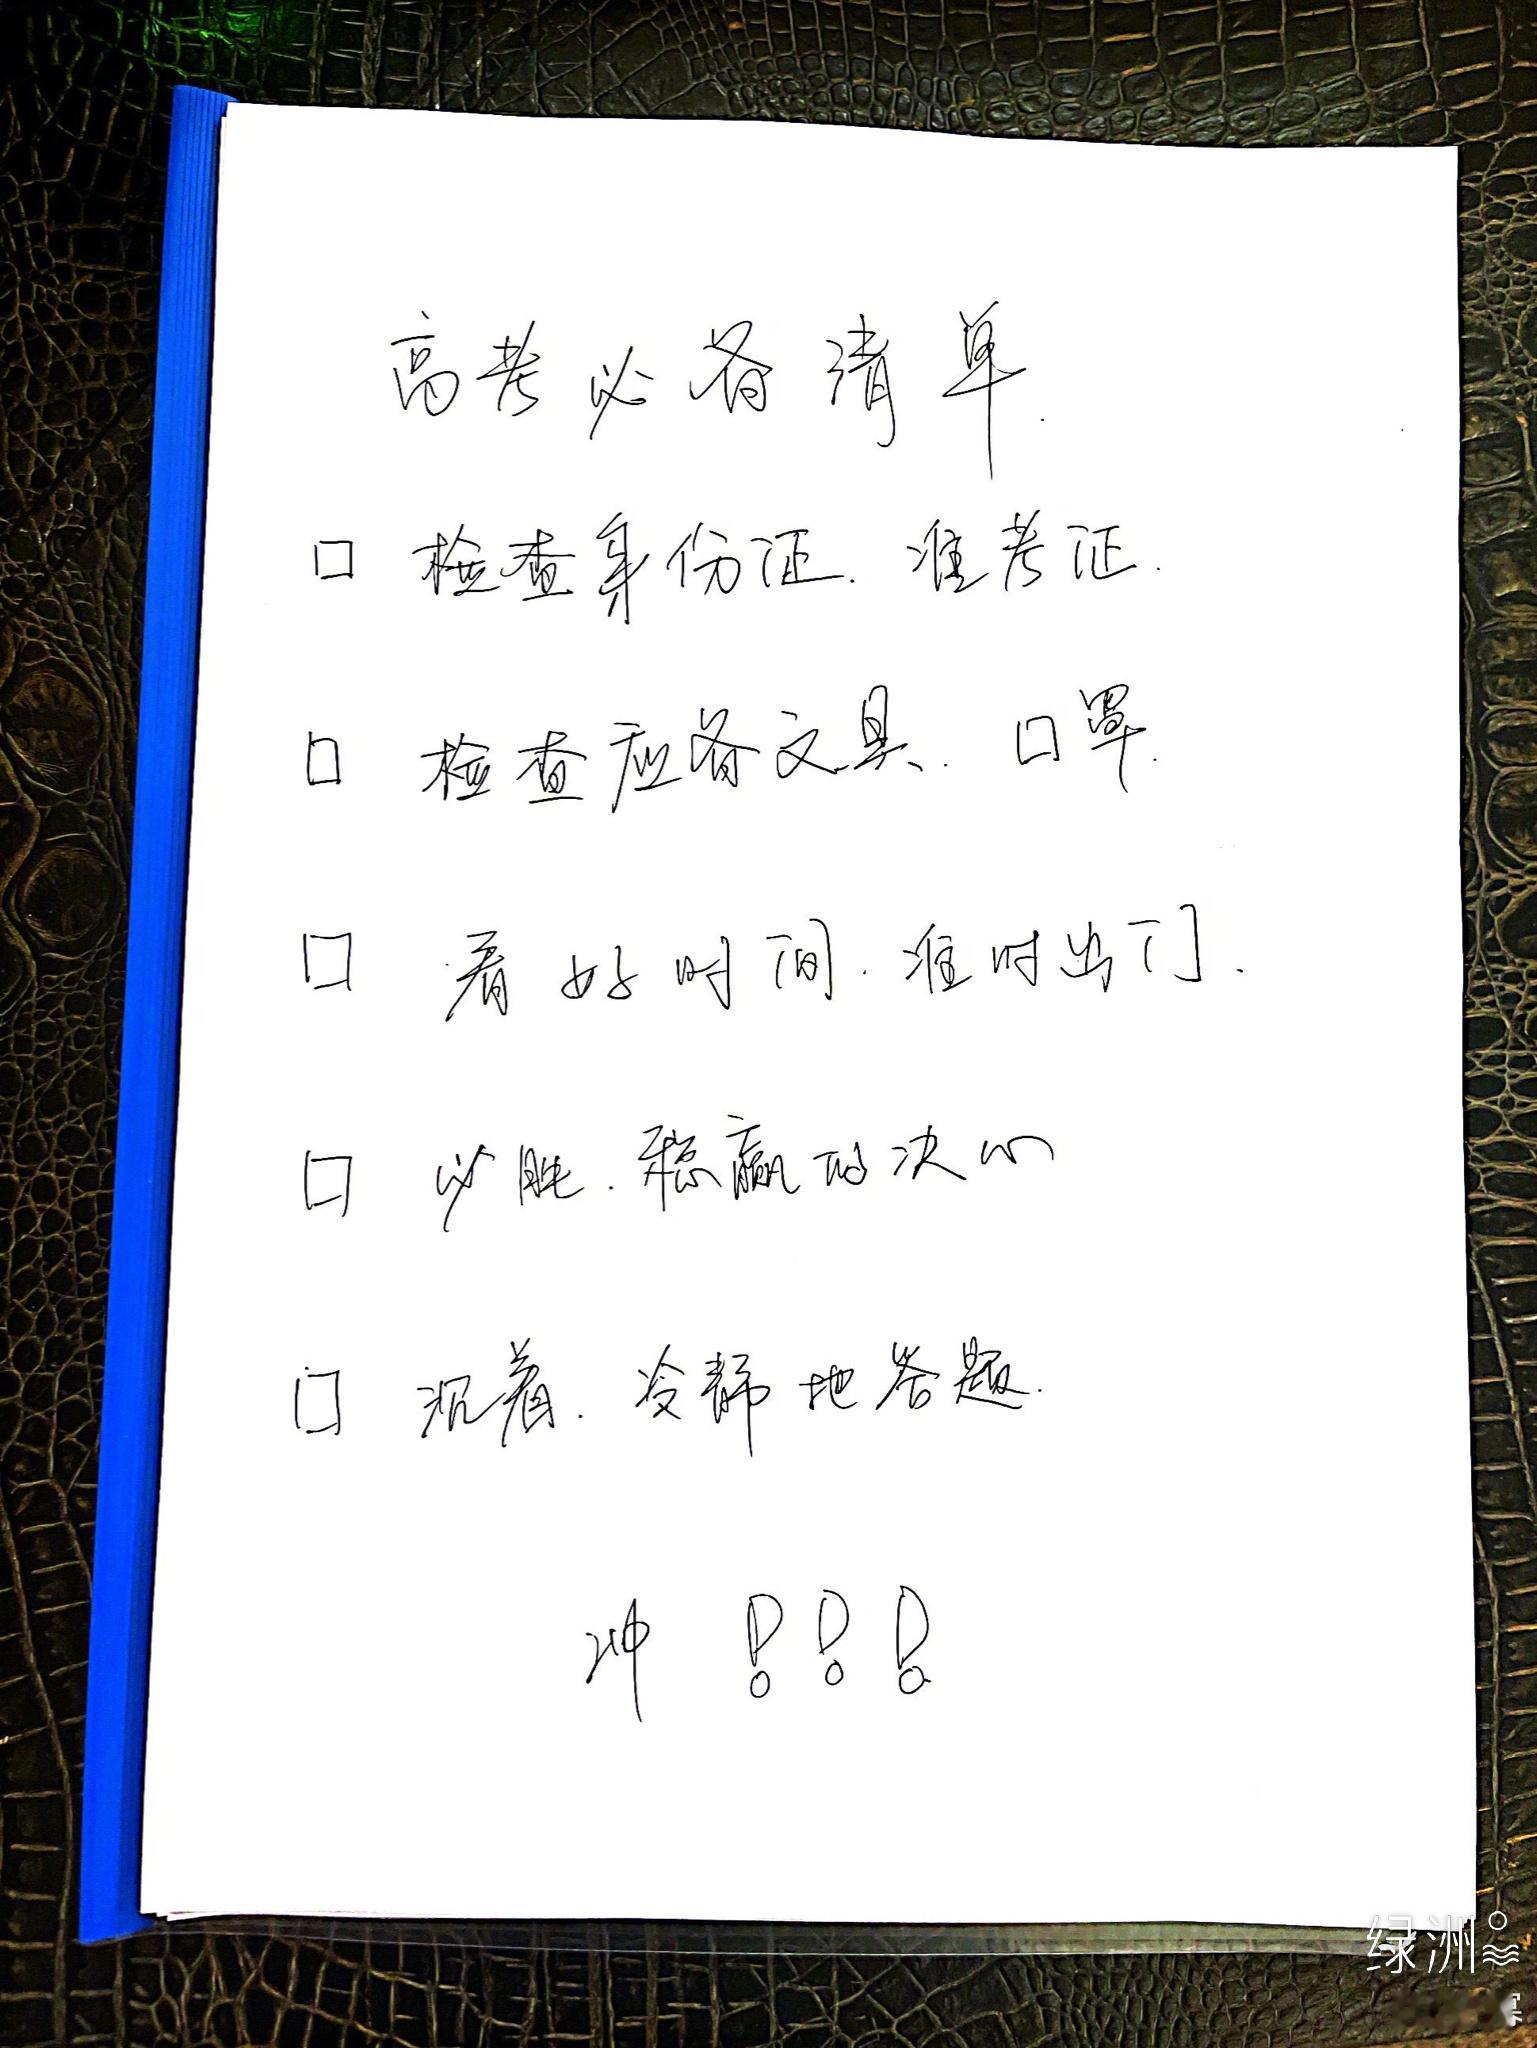 高考必备清单.
□ 检查身份证.准考证.
□ 检查应备文具.口罩.
□ 看好时间.准时出门.
□ 必胜.稳赢的决心
□ 沉着.冷静地答题.
冲！！！
绿洲